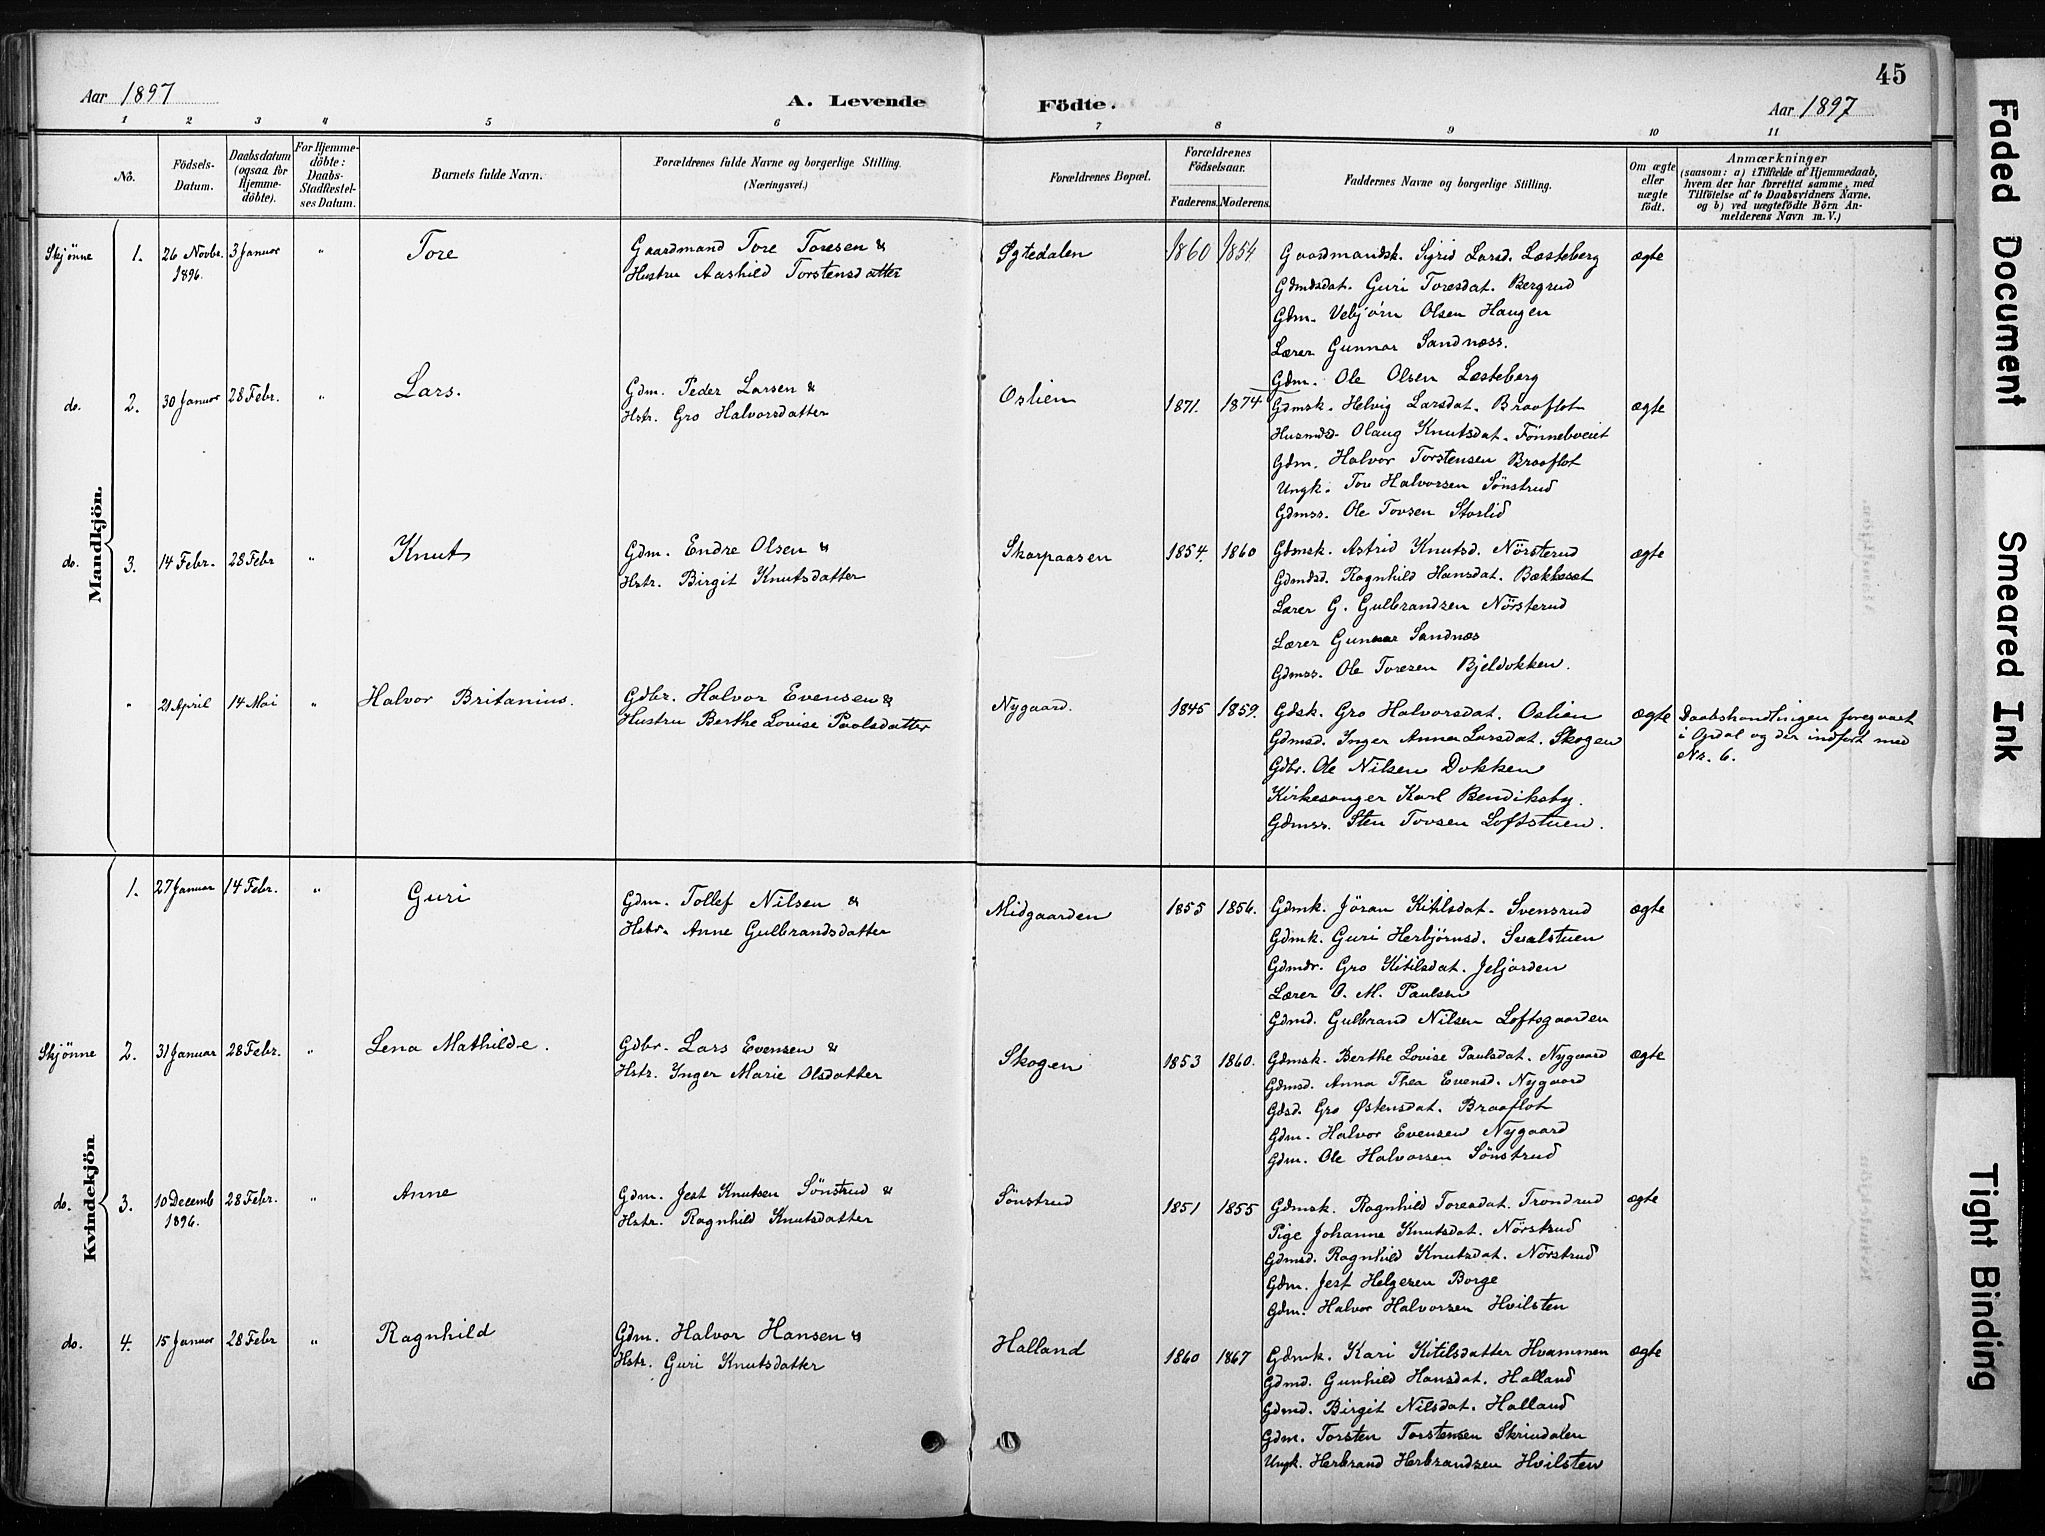 45
Aar 1897
A. Levende
Födte.
Aar 1897
1 2 3 4 5 6 7 8 9 10 11
No.
Födsels-
Datum.
Daabsdatum
(ogsaa for
Hjemme-
döbte).
For Hjemme-
döbte:
Daabs-
Stadfæstel-
ses Datum.
Barnets fulde Navn.
Forældrenes fulde Navne og borgerlige Stilling.
(Næringsvei.)
Forældrenes Bopæl.
Forældrenes
Födselsaar.
Faderens. Moderens.
Faddernes Navne og borgerlige Stilling.
Om ægte
eller
uægte
födt.
Anmærkninger
(saasom: a) i Tilfælde af Hjemmedaab,
hvem der har forrettet samme, med
Tilföielse af to Daabsvidners Navne.
og b) ved uægtefödte Börn An-
melderens Navn m. V.)
Mandkjön.
Skjønne 1. 26 Novbr. 3 Januar " Tore
1896.
Gaardmand Tore Toresen &
Hustru Aashild Torstensdatter
Sgtedalen 1860 1854
Gaardmandsk. Sigrid Larsd. Læsteberg ægte
Gdmdsdat. Guri Toresdat. Bergrud
Gdm. Vebjørn Olsen Haugen
Lærer Gunnar Sandnæss.
Gdm. Ole Olsen Læsteberg
do. 2. 30 Januar 28 Febr. " Lars.
Gdm. Peder Larsen &
Hstr. Gro Halvorsdatter
Oslien 1871. 1874
Gdmsk. Helvig Larsdat. Braaflot ægte
Husmds. Olaug Knutsdat. Fønnebøeiet
Gdm. Halvor Torstensen Braaflot
Ungk. Tore Halvorsen Sønstrud
Gdmss. Ole Tovsen Storlid
do. 3. 14 Febr. 28 Febr " Knut
Gdm. Endre Olsen &
Hstr. Birgit Knutsdatter
Skarpaasen 1854. 1860
Gdmsk. Astrid Knutsd. Nørsterud ægte
Gdmdsd. Ragnhild Hansdat. Bækkeset
Lærer G. Gulbrandsen Nørsterud
Lærer Gunnar Sandnæs
Gdmss. Ole Toresen Bjeldokken.
" 21 April 14 Mai " Halvor Britanius.
Gdbr. Halvor Evensen &
Hustru Berthe Lovise Paalsdatter
Nygaard. 1845 1859.
Gdsk. Gro Halvorsdat. Oslien ægte
Gdmsd. Inger Anna Larsdat. Skogen
Gdbr. Ole Nilsen Dokken
Kirkesanger Karl Bendiksby.
Gdmss. Sten Tovsen Loftstuen.
Daabshandlingen foregaaet
i Opdal og der indført med
Nr. 6.
Kvindekjön.
1. 27 Januar 14 Febr. " Guri
Gdm. Tollef Nilsen &
Hstr. Anne Gulbrandsdatter
Midgaarden 1855 1856.
Gdmk. Jøran Kitilsdat. Svensrud ægte
Gdmk. Guri Herbjørnsd. Svalstuen
Gdmdr. Gro Kitilsdat. Jeljorden
Lærer O. M. Paulsen
Gdmd. Gulbrand Nilsen Loftsgaarden
Skjønne 2. 31 Januar 28 Febr. " Lena Mathilde.
Gdbr. Lars Evensen &
Hstr. Inger Marie Olsdatter
Skogen 1853 1860.
Gdmsk. Berthe Lovise Paulsdat. Nygaard ægte
Gdmsd. Anna Thea Evensd. Nygaard
Gdsd. Gro Østensdat. Braaflot
Gdm. Halvor Evensen Nygaard
Gdm. Ole Halvorsen Sønstrud
do. 3. 10 Decemb 28 Febr. " Anne
1896.
Gdm. Jest Knutsen Sønstrud &
Hstr. Ragnhild Knutsdatter
Sønstrud 1851 1855
Gdmsk. Ragnhild Toresdat. Trondrud ægte
Pige Johanne Knutsdat. Nørstrud
Gdmsd. Ragnhild Knutsdat. Nørstrud
Gdm. Jest Helgesen Borge
Gdm. Halvor Halvorsen Hvilsten
do. 4. 15 Januar 28 Febr " Ragnhild
Gdm. Halvor Hansen &
Hstr. Guri Knutsdatter
Halland 1860 1867
Gdmk. Kari Kitilsdatter Hvammen ægte
Gdmd. Gunhild Hansdat. Halland
Gdmd. Birgit Nilsdat. Halland
Gdm. Torsten Torstensen Skrindalen
Ungk. Herbrand Herbrandsen Hvilsten
Faded Document
Smeared Ink
Tight Binding